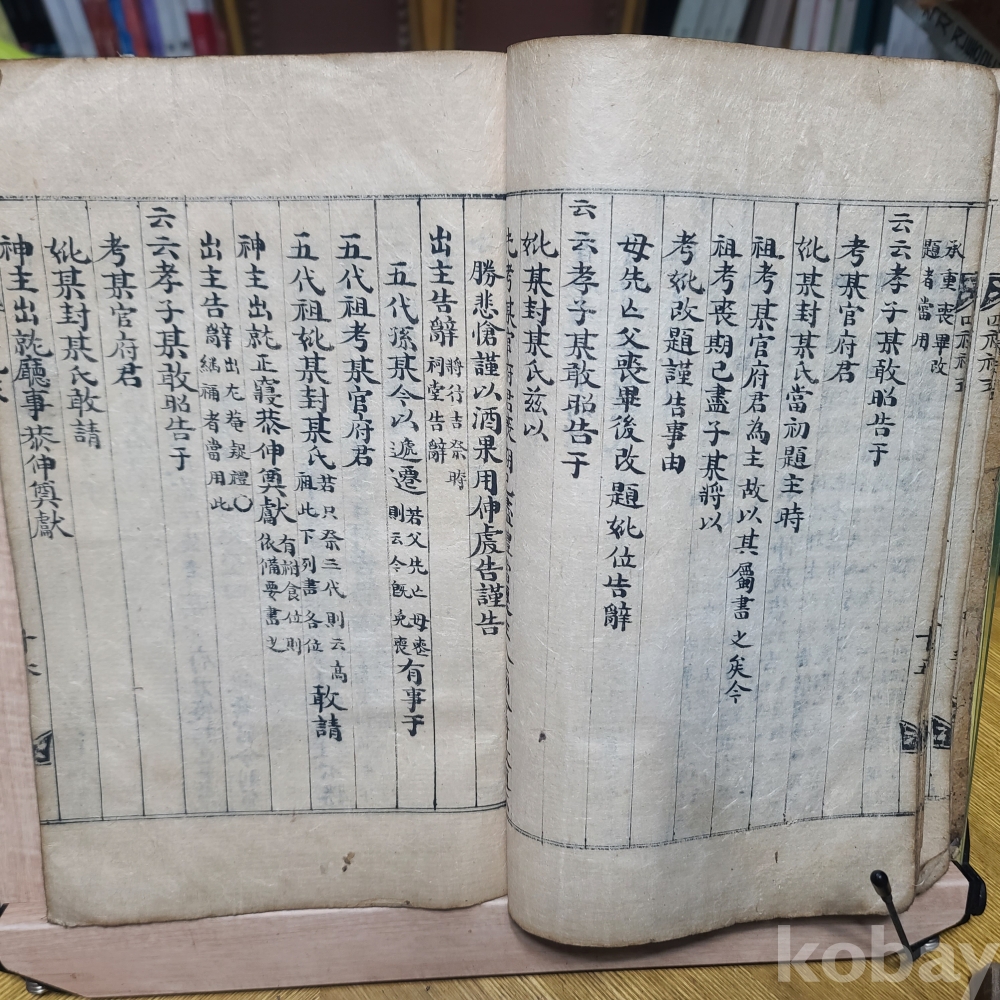 承重喪畢改
題者當用
云云孝子某敢昭告于
考某官府君
妣某封某氏當初題主時
祖考某官府君為主故以其屬書之矣今
祖考喪期已盡子某將以
考妣改題謹告事由
母先亡父喪畢後改題妣位告辭
云云孝子某敢昭告于
妣某封某氏玆以
先考某官府君喪期已盡
勝悲愴謹以酒果用伸虔告謹告
出主告辭 將行吉祭時祠堂告辭
五代孫某今以遞遷 若父先亡母喪則云今旣免喪 有事于
五代祖考某官府君
五代祖妣某封某氏 若只祭三代則云高祖此下列書各位 敢請
神主出就正寢恭伸奠獻 有祔食位則依備要書之
出主告辭 出尤菴疑禮〇繼禰者當用此
云云孝子某敢昭告于
考某官府君
妣某封某氏敢請
神主出就廳事恭伸奠獻
kobay